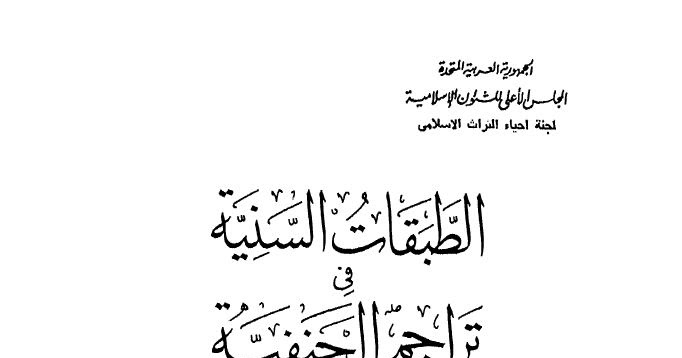 الجمهورية العربية المتحدة
المجلس الأعلى للشئون الإسلامية
لجنة احياء التراث الاسلامى
الطَّبَقَاتُ السَّنِيَّة
فِي
تَرَاجِمِ الحَنَفِيَّة